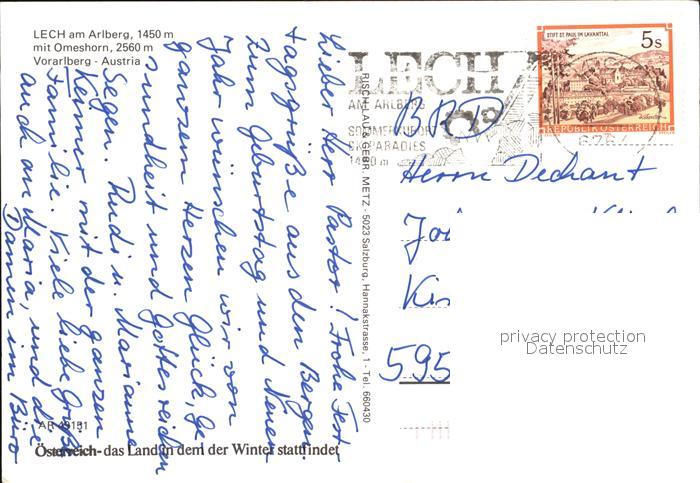 LECH am Arlberg, 1450 m
mit Omeshorn, 2560 m
Vorarlberg - Austria
Lieber Herr Pastor! Frohe Fest-
tagsgrüße aus den Bergen.
Zum Geburtstag und Neuen
Jahr wünschen wir von
ganzem Herzen Glück, Ge-
sundheit und Gottes reichen
Segen Rudi u. Marianne
Kemmer mit der ganzen
Familie. Viele liebe Grüße
auch an Maria, und die
Damen im Büro
AR 49131
Österreich - das Land, in dem der Winter stattfindet
RISCH-LAU & GEBR. METZ - 5023 Salzburg, Hannakstrasse, 1 - Tel. 660430
LECH
AM ARLBERG
SOMMERKURORT
SKIPARADIES
STIFT ST. PAUL IM LAVANTTAL
5s
REPUBLIK ÖSTERREICH
BRD
Herrn Dechant
595
privacy protection
Datenschutz